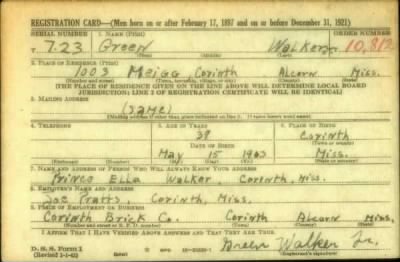 REGISTRATION CARD—(Men born on or after February 17, 1897 and on or before December 31, 1921)
SERIAL NUMBER 1. NAME (Print) ORDER NUMBER
T 723 Green Walker 10,812
(First) (Middle) (Last)
2. PLACE OF RESIDENCE (Print)
1003 Meigg Corinth Alcorn Miss.
(Number and street) (Town, township, village, or city) (County) (State)
[THE PLACE OF RESIDENCE GIVEN ON THE LINE ABOVE WILL DETERMINE LOCAL BOARD
JURISDICTION; LINE 2 OF REGISTRATION CERTIFICATE WILL BE IDENTICAL]
3. MAILING ADDRESS
(same)
[Mailing address if other than place indicated on line 2. If same insert word same]
4. TELEPHONE 5. AGE IN YEARS 6. PLACE OF BIRTH
38 Corinth
DATE OF BIRTH (Town or county)
May 15 1903 Miss.
(Exchange) (Number) (Mo.) (Day) (Yr.) (State or country)
7. NAME AND ADDRESS OF PERSON WHO WILL ALWAYS KNOW YOUR ADDRESS
Prince Ella Walker, Corinth, Miss.
8. EMPLOYER'S NAME AND ADDRESS
Joe Pratts, Corinth, Miss.
9. PLACE OF EMPLOYMENT OR BUSINESS
Corinth Brick Co. Corinth Alcorn Miss.
(Number and street or R. F. D. number) (Town) (County) (State)
I AFFIRM THAT I HAVE VERIFIED ABOVE ANSWERS AND THAT THEY ARE TRUE.
D. S. S. Form 1
(Revised 1-1-42) Green Walker Jr.
(Registrant's signature)